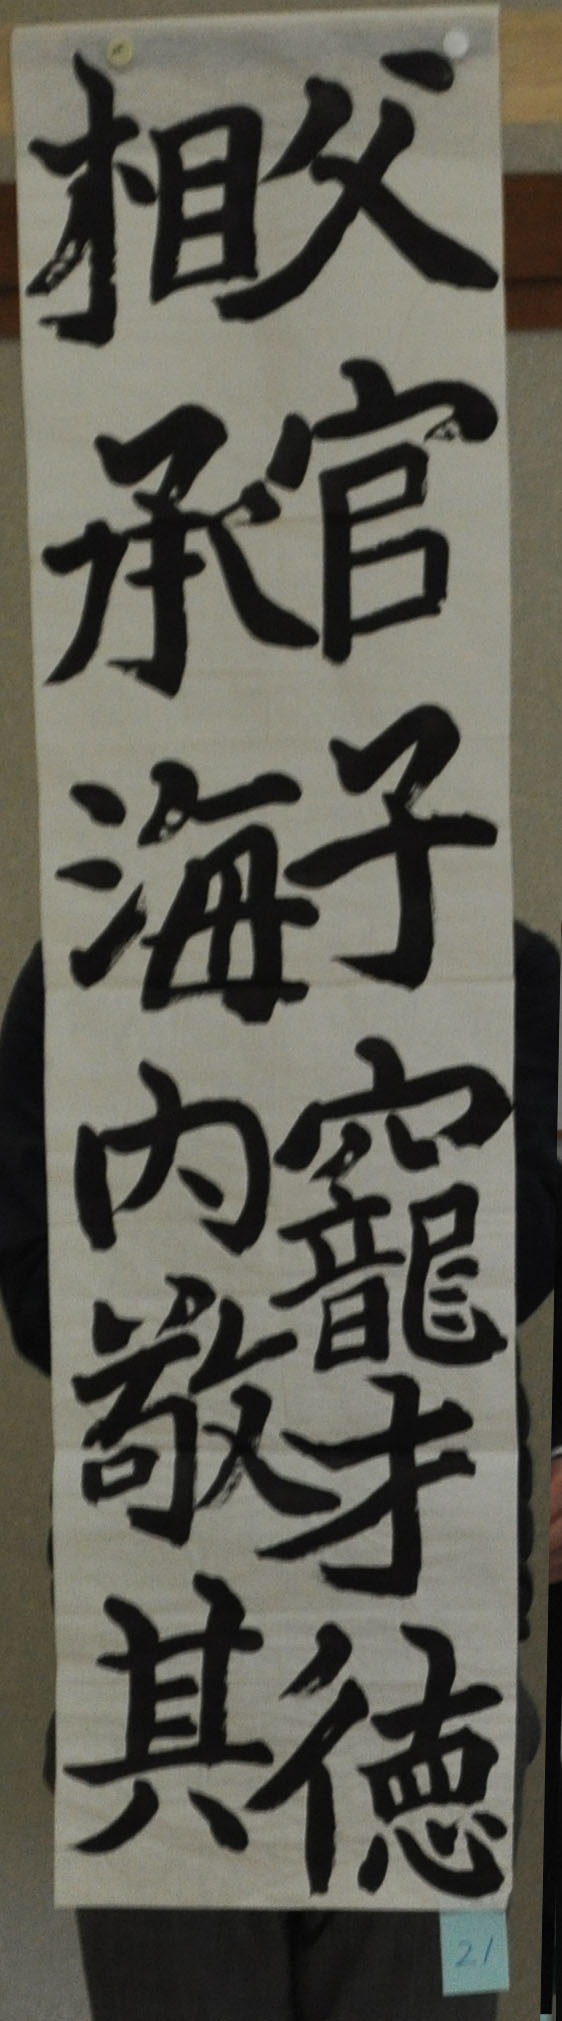 父官子竉才徳
相承海内敬其
21